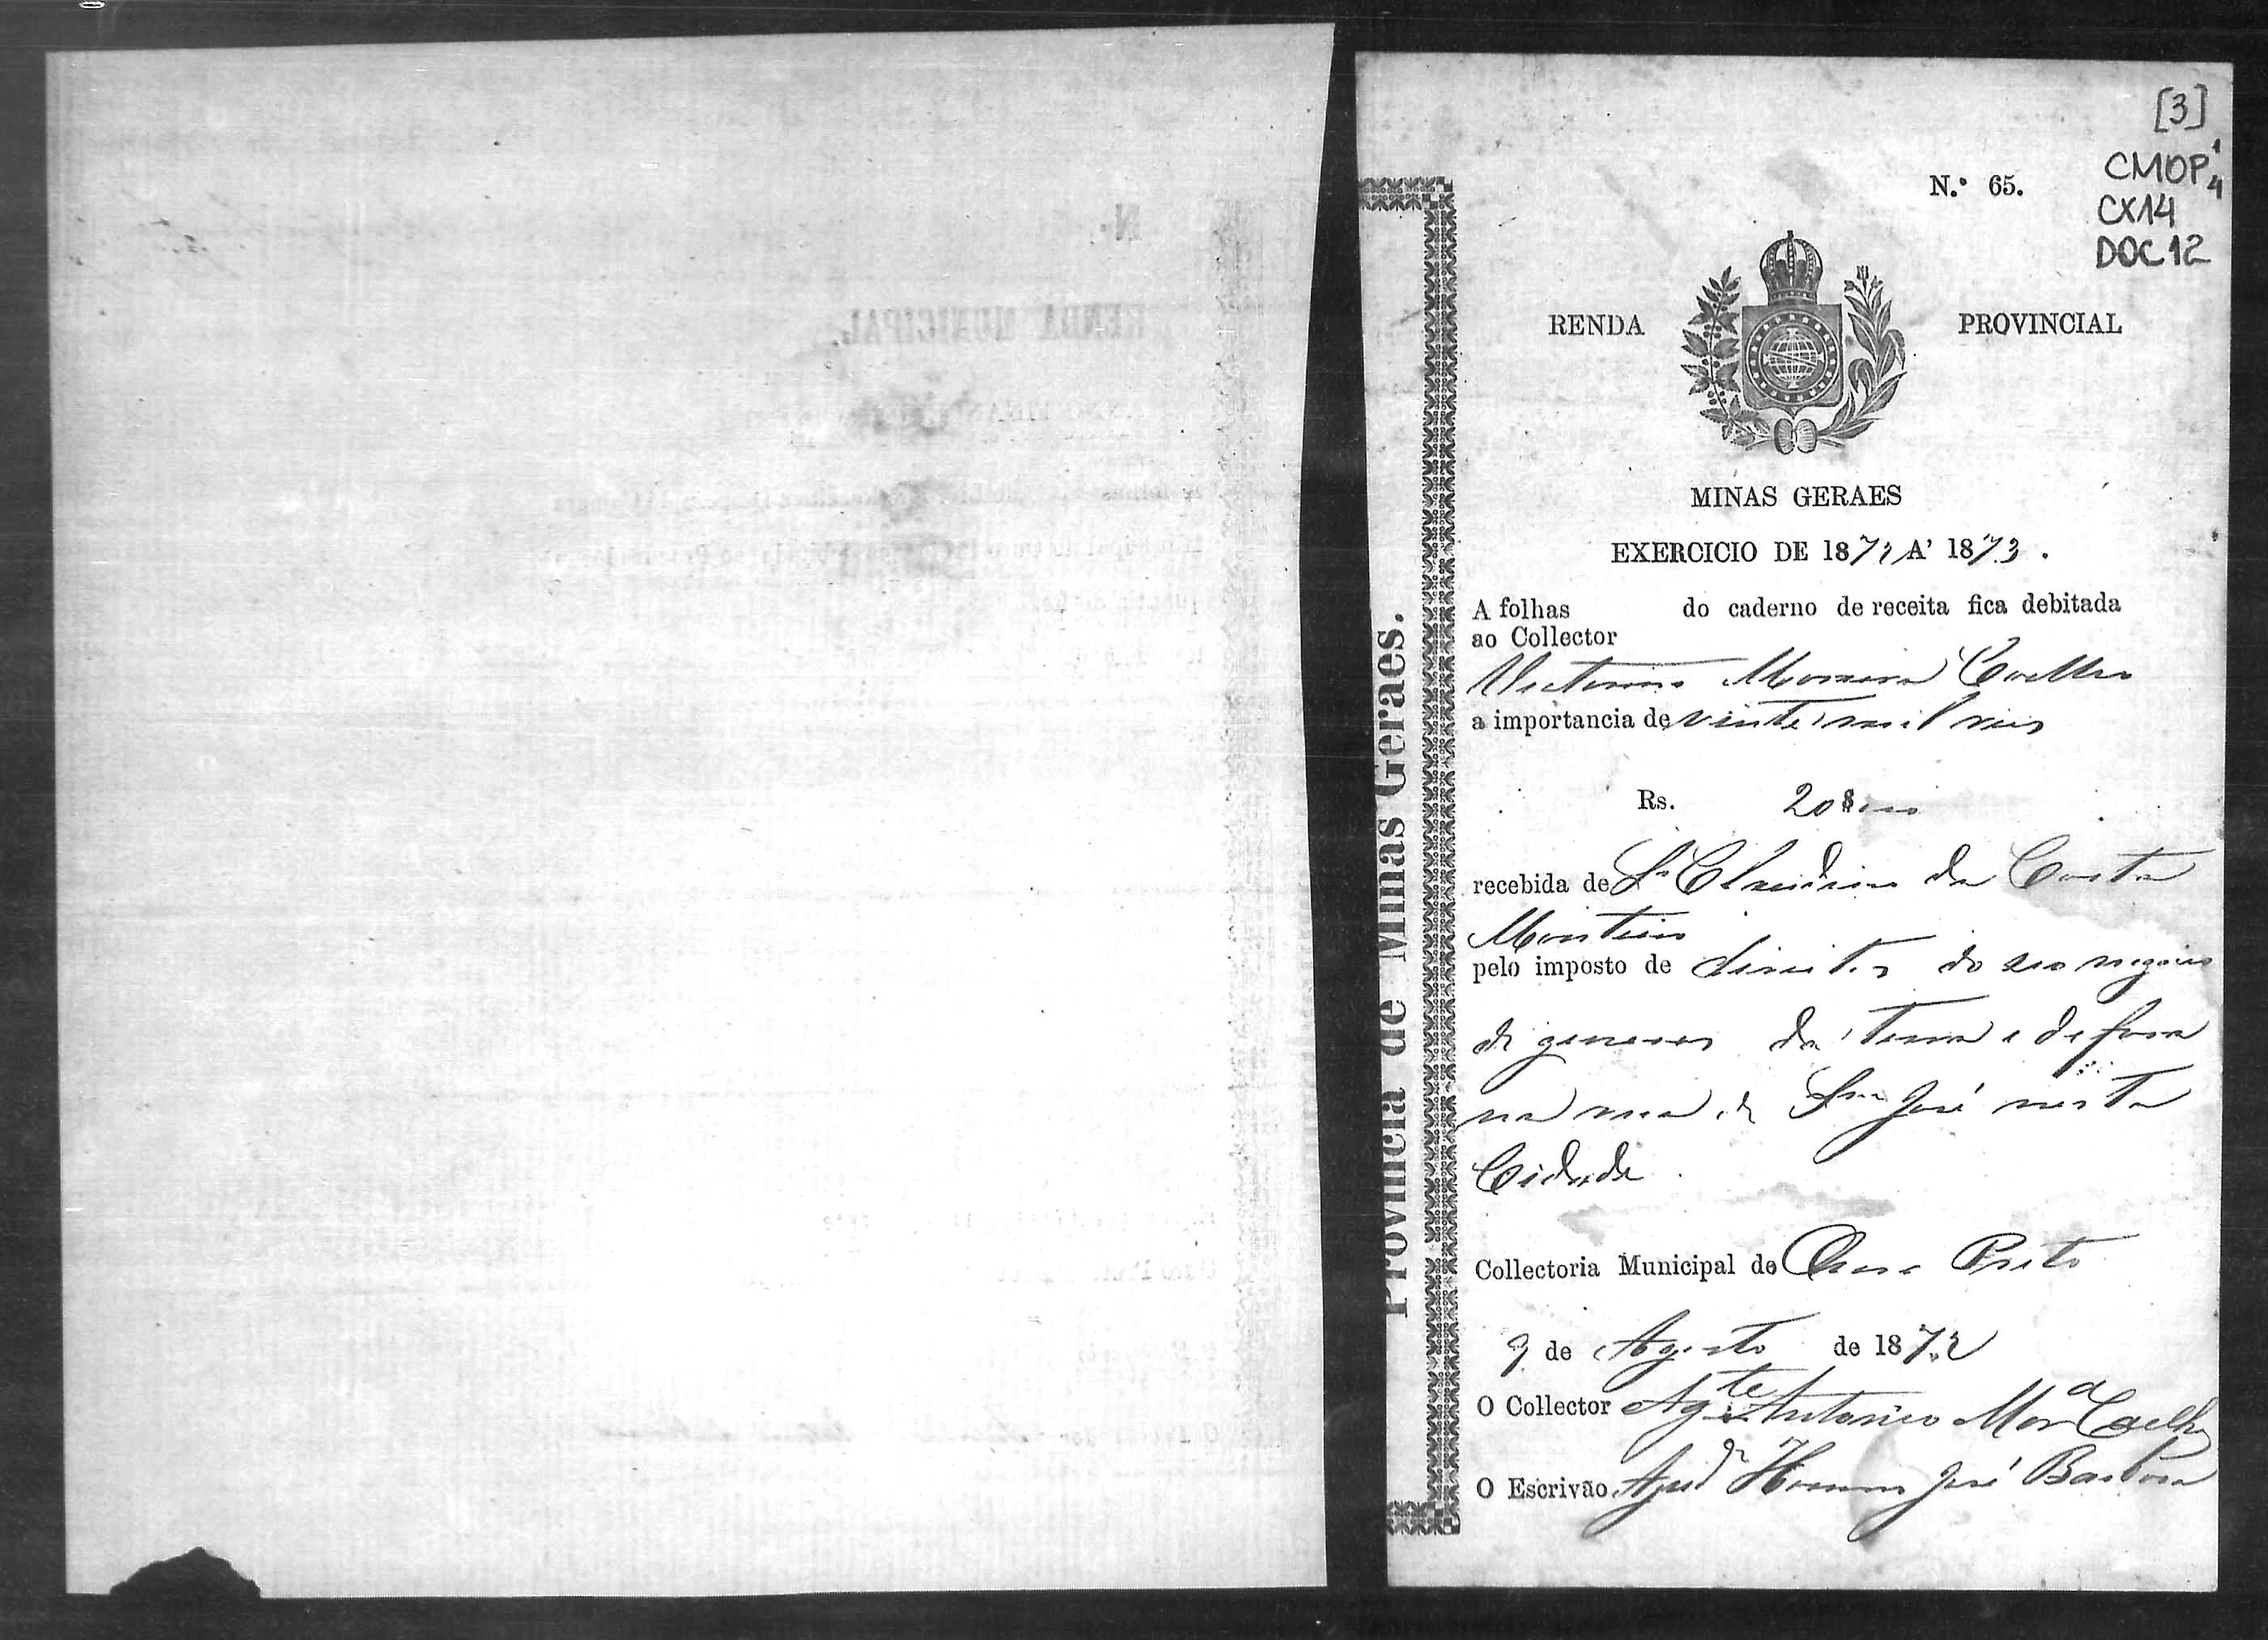 [3]
CMOP 1
4
CX14
DOC 12
N.º 65.
RENDA PROVINCIAL
MINAS GERAES
EXERCICIO DE 1872 A' 1873.
A folhas do caderno de receita fica debitada
ao Collector
Victorino Moreira Coelho
a importancia de vinte mil reis
Rs. 20$000
recebida de Claudino da Costa
Monteiro
pelo imposto de direitos do seo negocio
de generos da terra e de fora
na rua de São José nesta
Cidade.
Collectoria Municipal de Ouro Preto
9 de Agosto de 1872
O Collector Ag.te Antonio Mor.a Coelho
O Escrivão Ajud.e José Barbosa
Provincia de Minas Geraes.
N.
RENDA MUNICIPAL